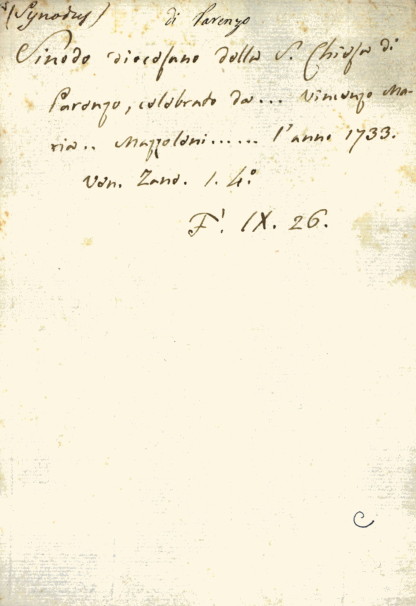 (Synodus) di Parenzo
Sinodo diocesano della S. Chiesa di
Parenzo, celebrato da... Vincenzo Ma-
ria.. Mazzoleni...... l'anno 1733.
Ven. Zane. 1. 4.º
F'. IX. 26.
C